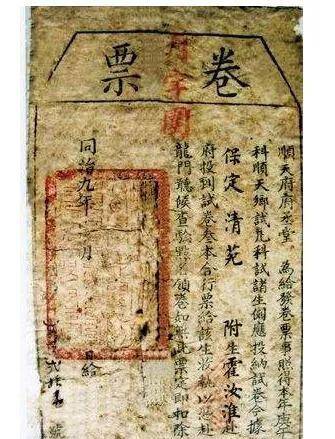 卷票
順天府府丞堂 為給發卷票事照得本年庚
科順天鄉試凡科試諸生例應投納試卷合據
保定清苑 附生霍汝淮赴
府投到試卷叁本合行票給該生收執以憑赴
龍門聽候查驗 領卷知 此票定即扣除
同治九年 月 日給
號